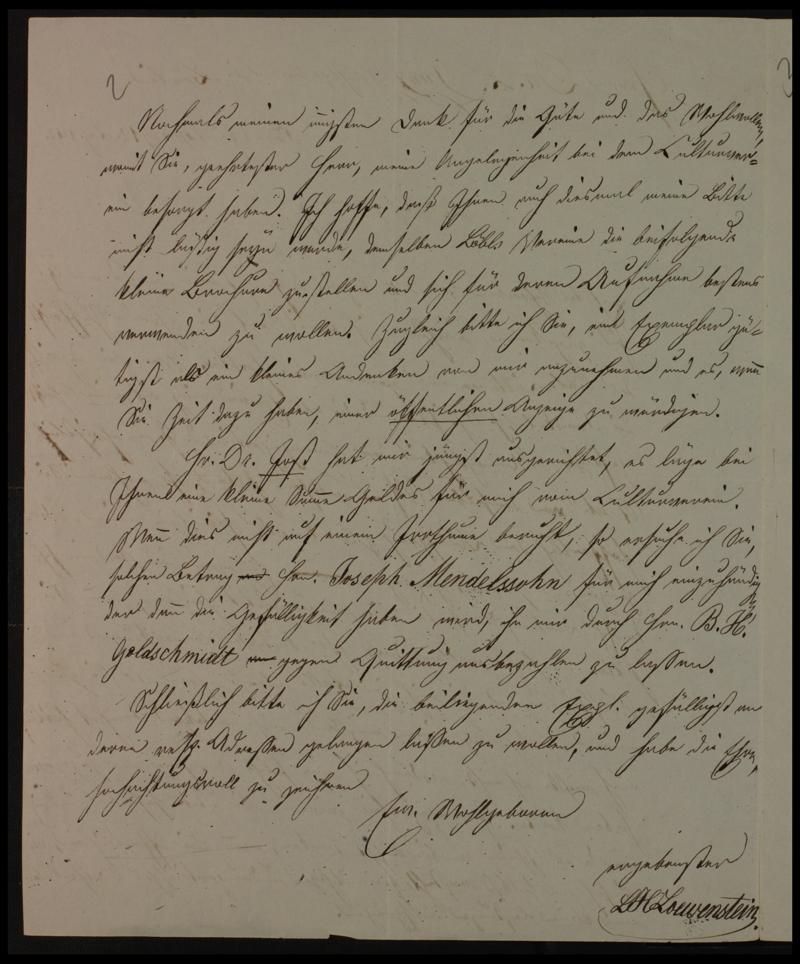 2
3
Nochmals meinen innigsten Dank für die Güte und das Wohlwollen,
womit Sie, geehrtester Herr, meine Angelegenheit bei dem Culturver-
ein besorgt haben. Ich hoffe, daß Ihnen auch diesmal meine Bitte
nicht lästig seyn werde, demselben Löbl. Vereine die beifolgende
kleine Brochure zuzustellen und sich für deren Aufnahme bestens
verwenden zu wollen. Zugleich bitte ich Sie, ein Exemplar gü-
tigst als ein kleines Andenken von mir anzunehmen und es, wenn
Sie Zeit dazu haben, einer öffentlichen Anzeige zu würdigen.
Hr. Dr. Jost hat mir jüngst ausgerichtet, es läge bei
Ihnen eine kleine Summe Geldes für mich vom Culturverein.
Wenn dies nicht auf einem Irrthume beruht, so ersuche ich Sie,
solchen Betrag Hrn. Joseph Mendelssohn für mich einzuhändigen
der dann die Gefälligkeit haben wird, ihn mir durch Hrn. B. H.
Goldschmidt gegen Quittung ausbezahlen zu lassen.
Schließlich bitte ich Sie, die beiliegenden Expl. gefälligst an
deren resp. Adressen gelangen lassen zu wollen, und habe die Ehre,
hochachtungsvoll zu zeichnen
Ew. Wohlgeboren
ergebenster
LHLoewenstein.